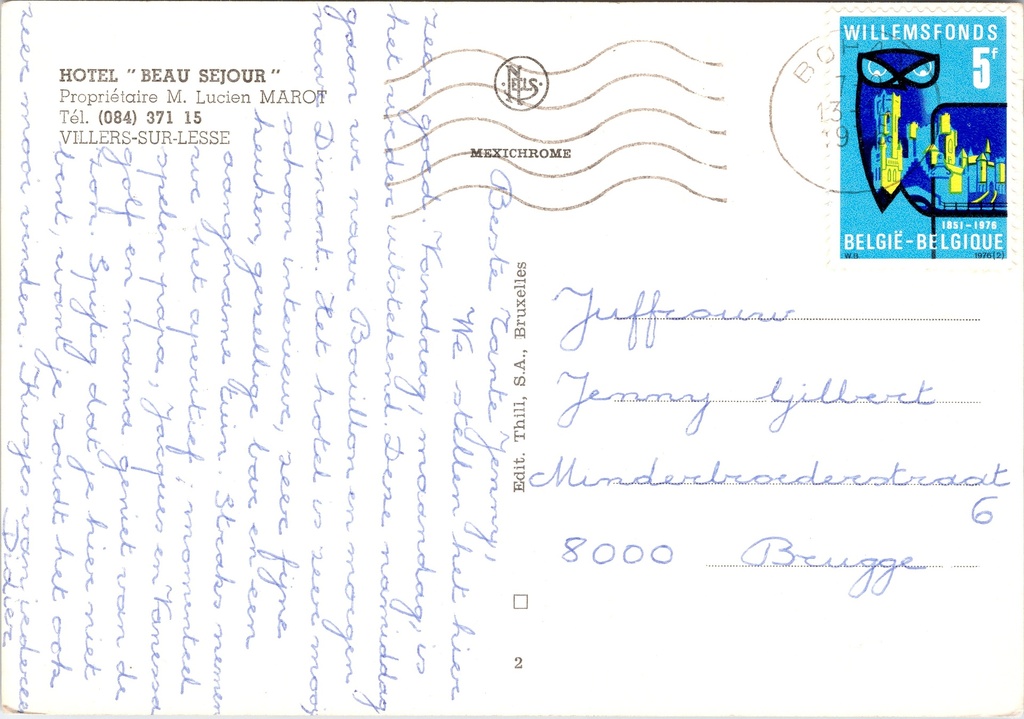 HOTEL "BEAU SEJOUR"
Propriétaire M. Lucien MAROT
Tél. (084) 371 15
VILLERS-SUR-LESSE
NELS
MEXICHROME
Edit. Thill, S.A., Bruxelles
2
WILLEMSFONDS
5F
1851-1976
BELGIË-BELGIQUE
W.B
1976(2)
13
19
Beste Tante Jenny,
We stellen het hier
zeer goed. Vandaag, maandag, is
het weder uitstekend. Deze namiddag
gaan we naar Bouillon en morgen
naar Dinant. Het hotel is zeer mooi,
schoon interieur, zeer fijne
keuken, gezellige bar en een
aangename tuin. Straks nemen
we het aperitief; momenteel
spelen papa, Jacques en Vanessa
golf en mama geniet van de
zon. Spijtig dat je hier niet
bent, want je zoudt het ook
zeer mooi vinden. Kusjes van iedereen
Didier
Juffrouw
Jenny Gilbert
Minderbroederstraat
6
8000 Brugge